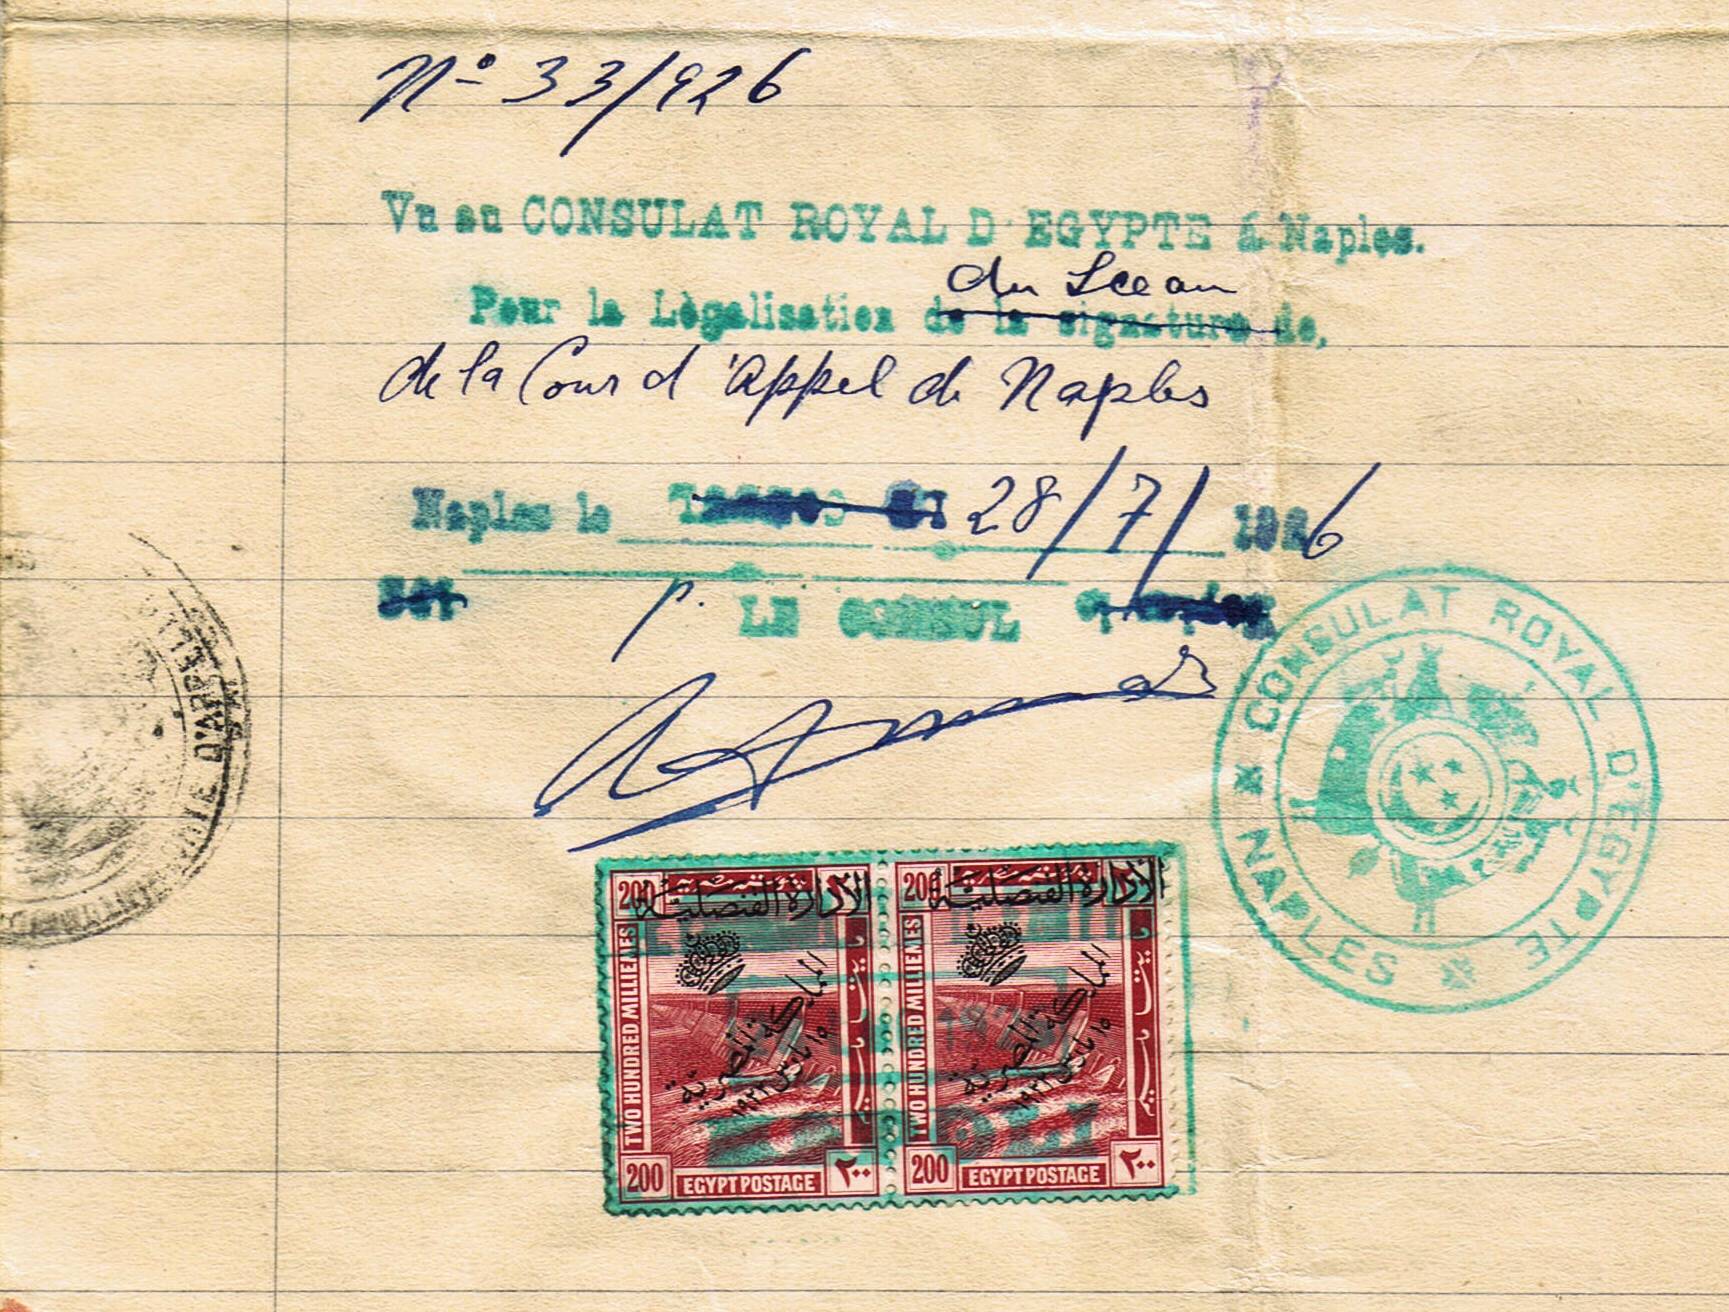 Nº 33/926
Vu au CONSULAT ROYAL D'EGYPTE à Naples.
du Sceau
Pour la Lègalisation de la signature de,
de la Cour d'Appel de Naples
Naples le 28/7/1926
p. LE CONSUL
CONSULAT ROYAL D'EGYPTE
NAPLES
D'APPEL
200 الإدارة القنصلية
TWO HUNDRED MILLIEMES
المملكة المصرية
١٥ مارس ١٩٢٢
200 EGYPT POSTAGE ٢٠٠
200 الإدارة القنصلية
TWO HUNDRED MILLIEMES
المملكة المصرية
١٥ مارس ١٩٢٢
200 EGYPT POSTAGE ٢٠٠